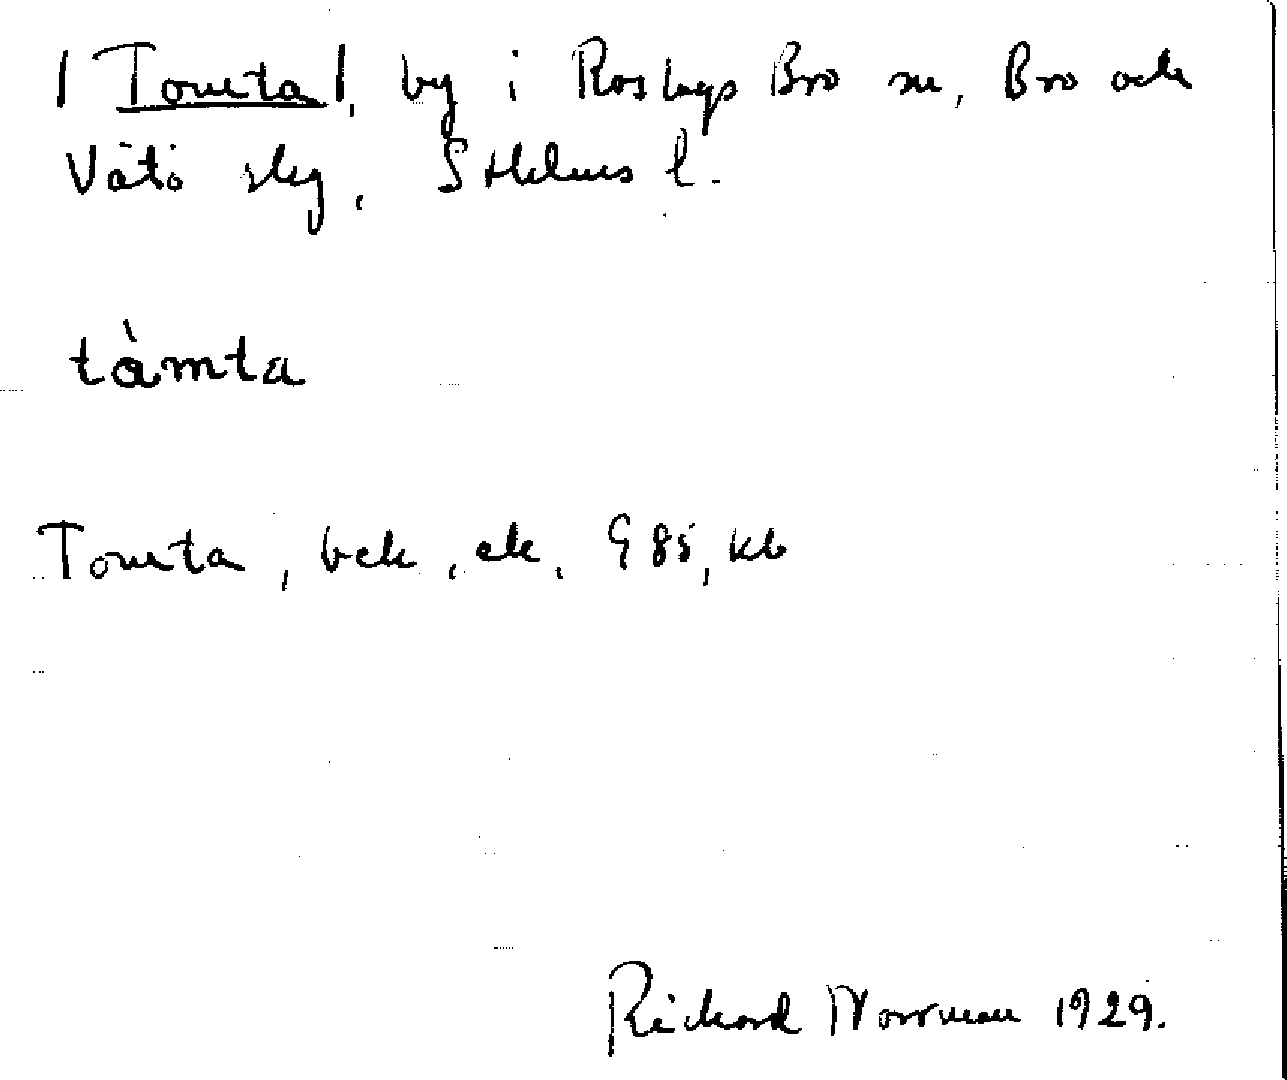 | Tomta |, by i Roslags Bro sn, Bro och
Vätö skg, Sthlms l.
tàmta
Tomta, bek, ek, G 85, kb
Rickard Norrman 1929.